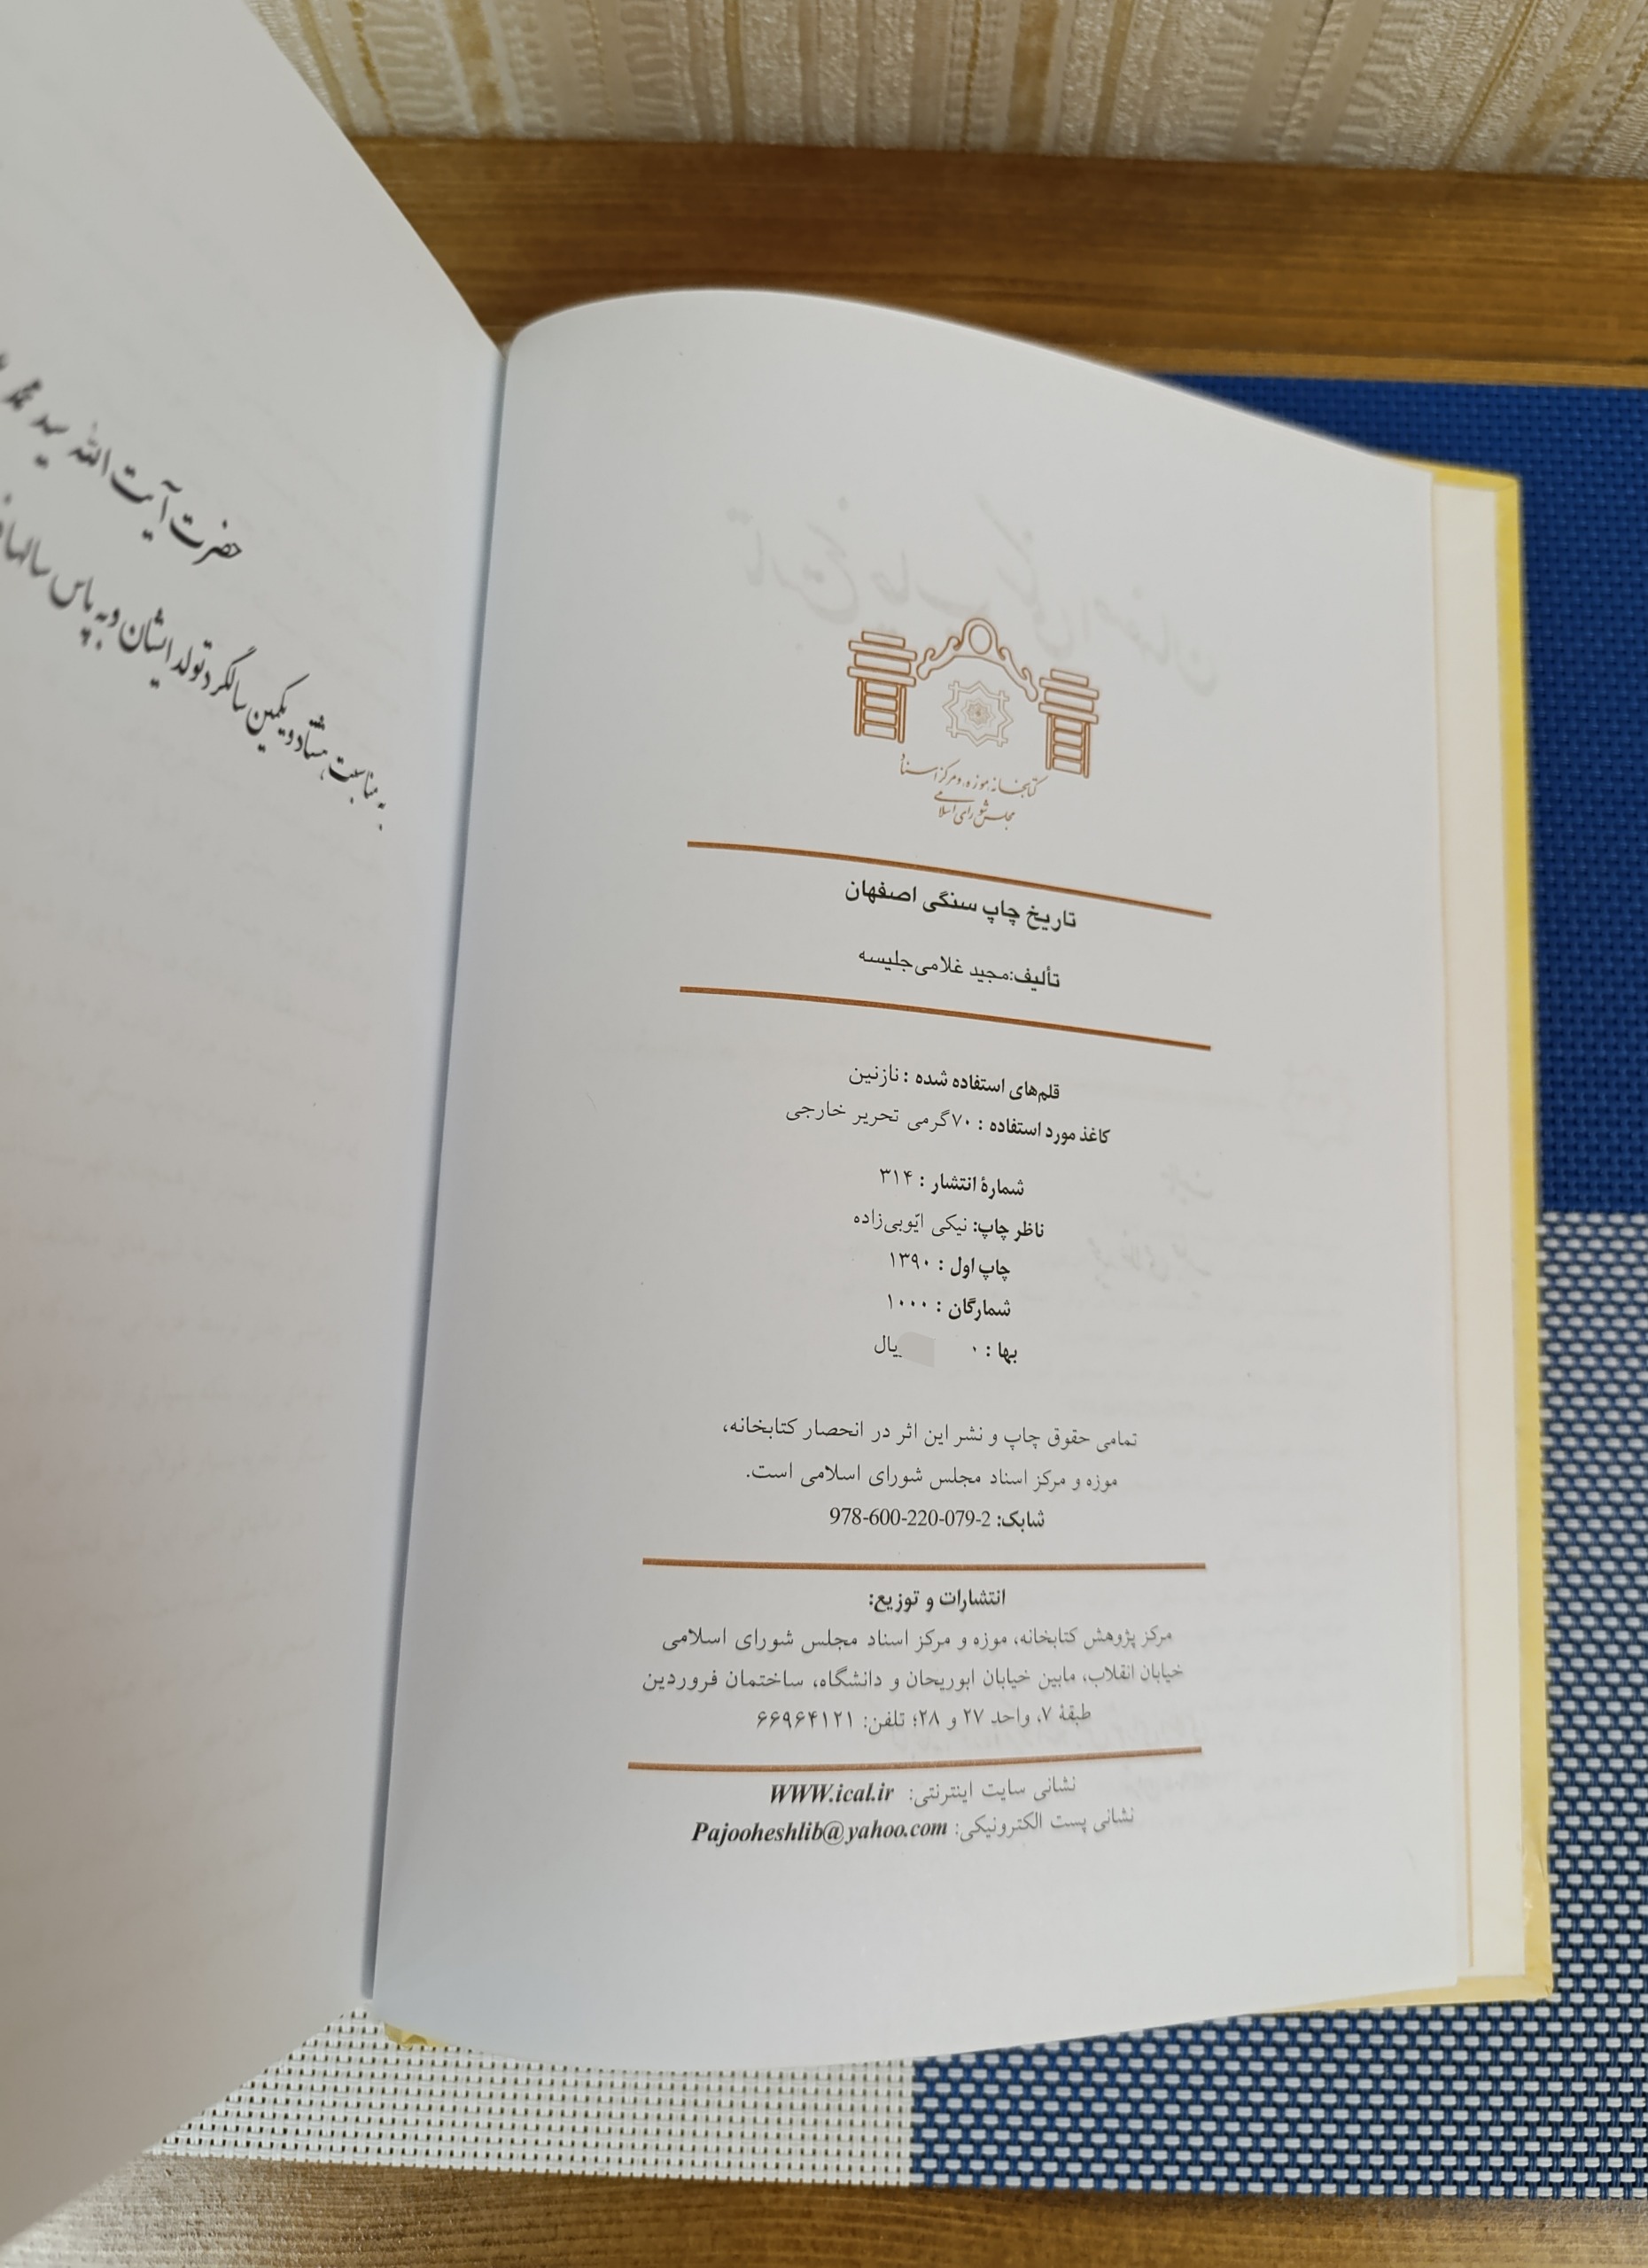 حضرت آیت الله سید
به مناسبت هشتاد و یکمین سالگرد تولد ایشان و به پاس سالها
کتابخانه، موزه و مرکز اسناد
مجلس شورای اسلامی
تاریخ چاپ سنگی اصفهان
تألیف:مجید غلامی‌جلیسه
قلم‌های استفاده شده : نازنین
کاغذ مورد استفاده : ۷۰گرمی تحریر خارجی
شمارهٔ انتشار : ۳۱۴
ناظر چاپ: نیکی ایّوبی‌زاده
چاپ اول : ۱۳۹۰
شمارگان : ۱۰۰۰
بها : ۰ یال
تمامی حقوق چاپ و نشر این اثر در انحصار کتابخانه،
موزه و مرکز اسناد مجلس شورای اسلامی است.
شابک: 978-600-220-079-2
انتشارات و توزیع:
مرکز پژوهش کتابخانه، موزه و مرکز اسناد مجلس شورای اسلامی
خیابان انقلاب، مابین خیابان ابوریحان و دانشگاه، ساختمان فروردین
طبقهٔ ۷، واحد ۲۷ و ۲۸؛ تلفن: ۶۶۹۶۴۱۲۱
نشانی سایت اینترنتی: WWW.ical.ir
نشانی پست الکترونیکی: Pajooheshlib@yahoo.com